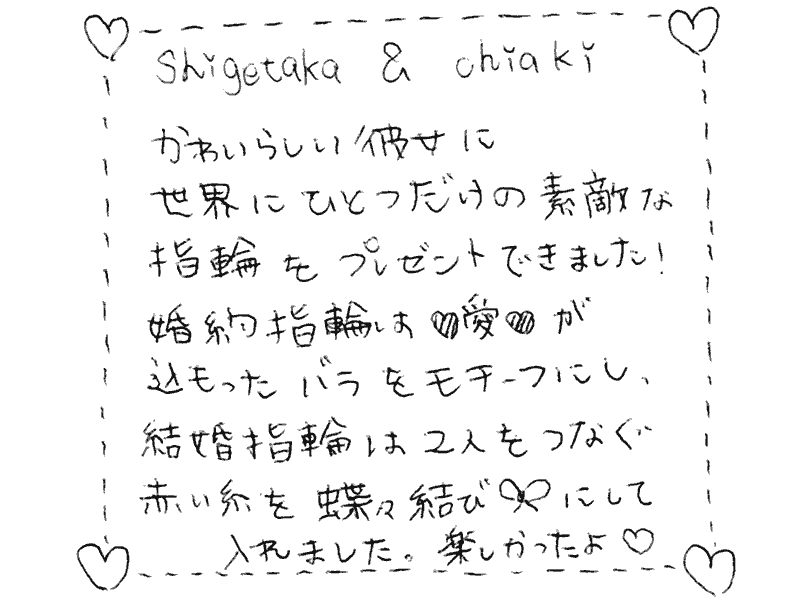 Shigetaka & chiaki
かわいらしい彼女に
世界にひとつだけの素敵な
指輪をプレゼントできました!
婚約指輪は♡愛♡が
込もったバラをモチーフにし、
結婚指輪は2人をつなぐ
赤い糸を蝶々結びにして
入れました。楽しかったよ♡